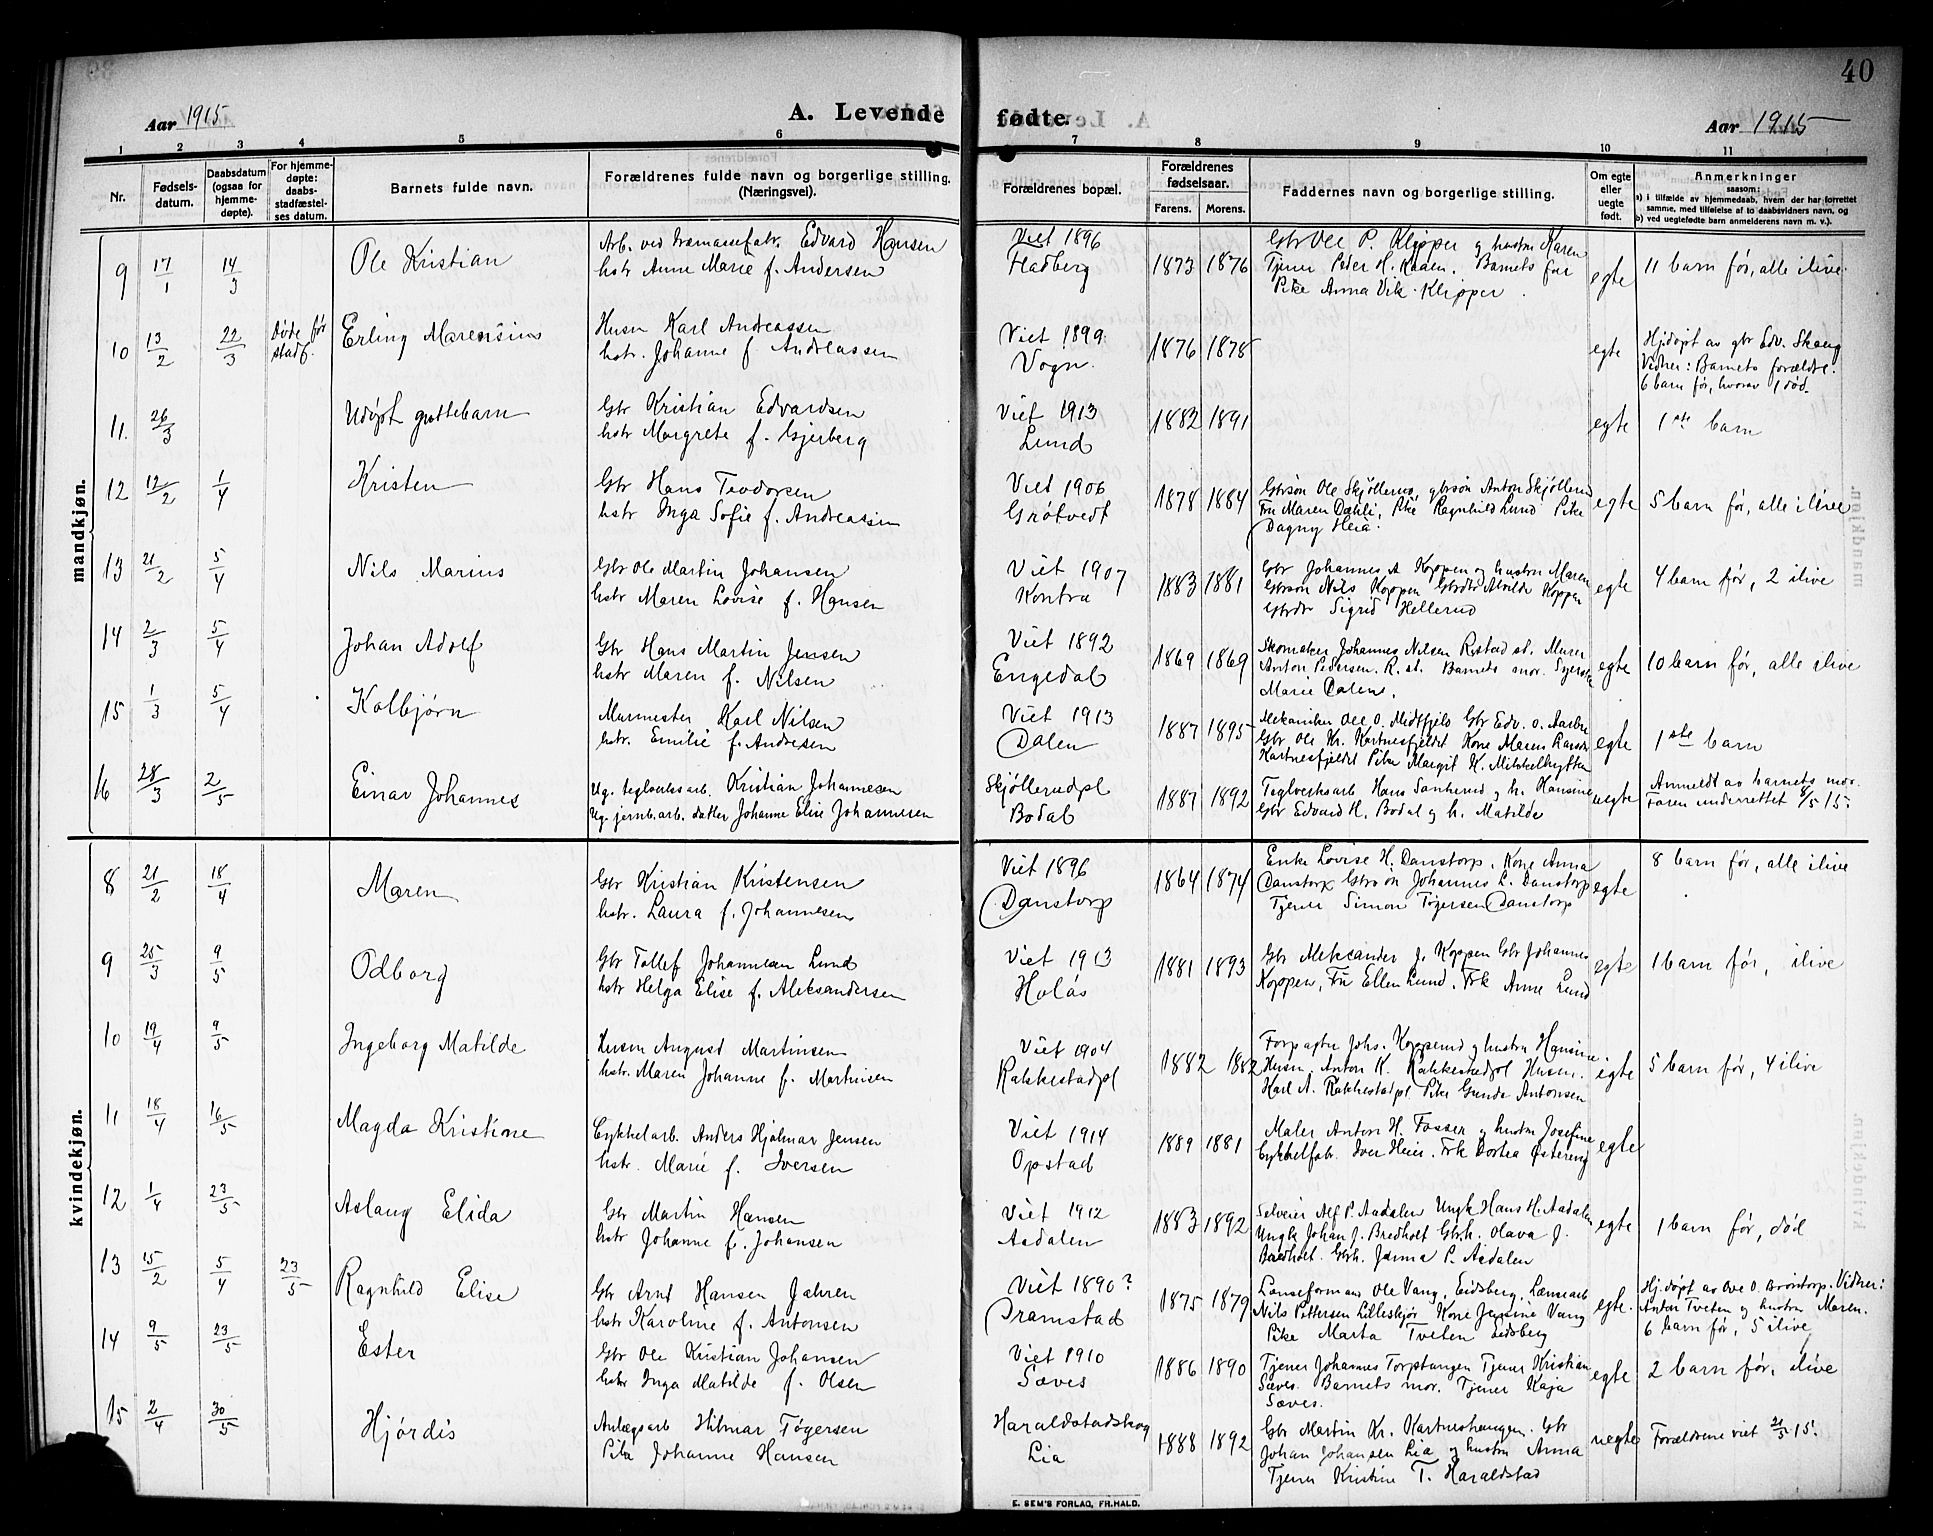 40
Aar 1915
A. Levende fødte.
Aar 1915
1 2 3 4 5 6 7 8 9 10 11
Nr.
Fødsels-
datum.
Daabsdatum
(ogsaa for
hjemme-
døpte).
For hjemme-
døpte:
daabs-
stadfæstel-
ses datum.
Barnets fulde navn.
Forældrenes fulde navn og borgerlige stilling.
(Næringsvei).
Forældrenes bopæl.
Forældrenes
fødselsaar.
Farens. Morens.
Faddernes navn og borgerlige stilling.
Om egte
eller
uegte
født.
Anmerkninger
saasom:
a) i tilfælde av hjemmedaab, hvem der har forrettet
samme, med tilføielse af to daabsvidners navn, og
b) ved uegtefødte barn anmelderens navn m. v.).
mandkjøn.
9 17/1 14/3 Ole Kristian
Arb. ved træmassefabr. Edvard Hansen
hstr Anne Marie f. Andersen
Viet 1896
Fladberg
1873 1876
Gbr Ole P. Klipper og hustru Karen
Tjener Peder H. Kaaen. Barnets far
Pike Anna Vik-Klipper.
egte
11 barn før, alle ilive.
10 13/2 22/3 Døde før
stadf.
Erling Marensius
Husm Karl Andreassen
hstr. Johanne f. Andreassen
Viet 1899
Vogn.
1876 1878
egte
Hjdøpt av gbr Edv. Skaug
Vidner: Barnets forældre.
6 barn før, hvorav 1 død.
11. 26/3 Udøpt guttebarn
Gbr Kristian Edvardsen
hstr Margrete f. Gjerberg
Viet 1913
Lund
1882 1891
egte
1ste barn
12 12/2 1/4 Kristen
Gbr Hans Teodorsen
hstr Inga Sofie f. Andreassen
Viet 1906
Grøtvedt
1878 1884
Gbrsøn Ole Skjøllerud, gbrsøn Anton Skjøllerud
Fru Maren Dæhli, Pike Ragnhild Lund Pike
Dagny Heia.
egte
5 barn før, alle ilive
13 21/2 5/4 Nils Marius
Gbr Ole Martin Johansen
hstr Maren Lovise f. Hansen
Viet 1907
Kontra
1883 1881
Gbr Johannes A Koppen og hustru Maren
Gbrsøn Nils Koppen Gbrdtr Alvilde Koppen
Gbrdtr Sigrid Hellerud
egte
4 barn før, 2 ilive
14 2/3 5/4 Johan Adolf
Gbr Hans Martin Jensen
hstr Maren f. Nilsen
Viet 1892
Engedal
1869 1869
Skomaker Johannes Nilsen R.stad st. Murer
Anton Pedersen. R. st. Barnets mor. Syerske
Marie Dalene.
egte
10 barn før, alle ilive
15 1/3 5/4 Kolbjørn
Murmester Karl Nilsen
hstr. Emilie f. Andresen
Viet 1913
Dalen
1887 1895
Mekaniker Ole O. Midtfjeld Gbr Edv. O.
Gbr Ole Kr. Kartnesfjeldet Kone Maren
Kartnesfjeldet Pike Margit K. Mikkelhytten
egte
1ste barn
16 28/3 2/5 Einar Johannes
Ug. teglverksarb. Kristian Johannesen
Ug. jernb.arb. datter Johanne Elise Johannesen
Skjøllerudpl
Bodal
1887 1892
Teglverksarb Hans Sanherud og h. Hansine
Gbr Edvard H. Bodal og h. Matilde
uegte
Anmeldt av barnets mor.
Faren underrettet 8/5 15.
kvindekjøn.
8 21/2 18/4 Maren
Gbr Kristian Kristensen
hstr. Laura f. Johannesen
Viet 1896
Danstorp
1864 1874
Enke Lovise H. Danstorp. Kone Anna
Danstorp Gbrsøn Johannes L. Danstorp
Tjener Simon Tøgersen Danstorp
egte
8 barn før, alle ilive
9 25/3 9/5 Odborg
Gbr Tollef Johannesen Lund
hstr Helga Elise f. Aleksandersen
Viet 1913
Holås
1881 1893
Gbr Aleksander J. Koppen Gbr Johannes
Koppen, Fru Ellen Lund. Frk Anne Lund
egte
1 barn før, ilive
10 19/4 9/5 Ingeborg Matilde
Husm August Martinsen
hstr. Maren Johanne f. Martinsen
Viet 1904
Rakkestadpl
1882 1882
Forpagter Johs. Kopperud og hustru Hansine.
Husm. Anton K. Rakkestadpl Husm.
Karl A. Rakkestadpl. Pike Gunda Antonsen
egte
5 barn før, 4 ilive
11 18/4 16/5 Magda Kristine
Cykkelarb. Anders Hjalmar Jensen
hstr. Marie f. Iversen
Viet 1914
Opstad
1889 1881
Maler Anton H. Fosser og hustru Josefine
Cykkelfabr. Iver Heier. Frk Dortea Østereng
egte
12 1/4 23/5 Aslaug Elida
Gbr Martin Hansen
hstr Johanne f. Johansen
Viet 1912
Aadalen
1883 1892
Selveier Alf P. Aadalen Ungk Hans H. Aadalen
Ungk Johan J. Bredholt Gbrh. Olava J.
Bredholt. Gbrh. Janna P. Aadalen
egte
1 barn før, død
13 15/2 5/4 23/5 Ragnhild Elise
Gbr Arnt Hansen Jahren
hstr Karoline f. Antonsen
Viet 1890?
Tramstad
1875 1879
Lænseformann Ole Vang, Eidsberg, Lænsearb
Nils Pettersen Lilleskjør Kone Jensine Vang
Pike Marta Tveten Eidsberg
egte.
Hj.døpt av Ove O. Brøntorp. Vidner:
Anton Tveten og hustru Maren.
6 barn før, 5 ilive
14 9/5 23/5 Ester
Gbr Ole Kristian Johansen
hstr Inga Matilde f. Olsen
Viet 1910
Sæves
1886 1890
Tjener Johannes Torptangen Tjener Kristian
Sæves. Barnets mor. Tjener Kaja
Sæves.
egte
2 barn før, ilive
15 2/4 30/5 Hjørdis
Anlægsarb Hilmar Tøgersen
Pike Johanne Hansen
Haraldstadskog
Lia
1888 1892
Gbr Martin Kr. Kartneshaugen. Gbr
Johan Johansen Lia og hustru Anna
Tjener Kristine T. Haraldstad
uegte
Forældrene viet 21/5 15.
E. SEM'S FORLAG, FR.HALD.